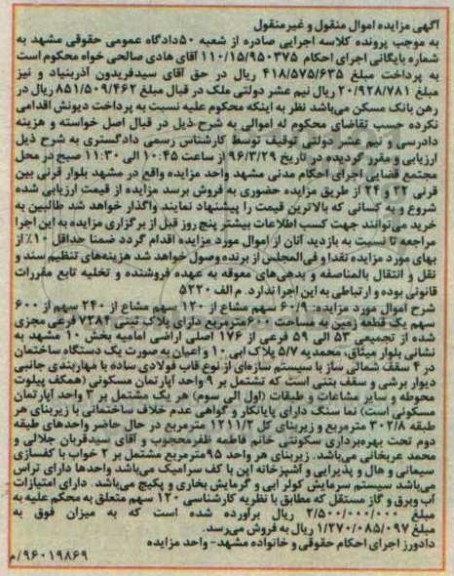 آگهی مزایده اموال منقول و غیرمنقول
به موجب پرونده کلاسه اجرایی صادره از شعبه ۵۰دادگاه عمومی حقوقی مشهد به
شماره بایگانی اجرای احکام ۱۱۰/۱۵/۹۵۰۳۷۵ آقای هادی صالحی خواه محکوم است
به پرداخت مبلغ ۴۱۸/۵۷۵/۶۳۵ ریال در حق آقای سیدفریدون آذربنیاد و نیز
مبلغ ۲۰/۹۲۸/۷۸۱ ریال نیم عشر دولتی ملک در قبال مبلغ ۸۵۱/۵۰۹/۴۶۲ ریال در
رهن بانک مسکن می‌باشد نظر به اینکه محکوم علیه نسبت به پرداخت دیونش اقدامی
نکرده حسب تقاضای محکوم له اموالی به شرح ذیل در قبال اصل خواسته و هزینه
دادرسی و نیم عشر دولتی توقیف توسط کارشناس رسمی دادگستری به شرح ذیل
ارزیابی و مقرر گردیده در تاریخ ۹۶/۳/۲۹ از ساعت ۱۰:۴۵ الی ۱۱:۳۰ صبح در محل
مجتمع قضایی اجرای احکام مدنی مشهد واحد مزایده واقع در مشهد بلوار قرنی بین
قرنی ۲۲ و ۲۴ از طریق مزایده حضوری به فروش برسد مزایده از قیمت ارزیابی شده
شروع و به کسانی که بالاترین قیمت را پیشنهاد نمایند واگذار خواهد شد طالبین به
خرید می‌توانند جهت کسب اطلاعات بیشتر پنج روز قبل از برگزاری مزایده به این اجرا
مراجعه تا نسبت به بازدید آنان از اموال مورد مزایده اقدام گردد ضمنا حداقل ۱۰٪ از
بهای مورد مزایده نقدا و فی‌المجلس از برنده وصول خواهد شد هزینه‌های تنظیم سند و
نقل و انتقال بالمناصفه و بدهی‌های معوقه به عهده فروشنده و تخلیه تابع مقررات
قانونی بوده و ارتباطی به این اجرا ندارد. م الف ۵۲۲۰
شرح اموال مورد مزایده: ۶۰/۹ سهم مشاع از ۱۲۰ سهم مشاع از ۲۴۰ سهم از ۶۰۰
سهم یک قطعه زمین به مساحت ۶۰۰مترمربع دارای پلاک ثبتی ۷۳۸۴ فرعی مجزی
شده از تجمیعی ۵۳ الی ۵۹ فرعی از ۱۷۶ اصلی اراضی امامیه بخش ۱۰ مشهد به
نشانی بلوار میثاق، محمدیه ۵/۷ پلاک آبی ۱۰ و اعیان به صورت یک دستگاه ساختمان
در ۴ سقف شمالی ساز با سیستم سازه‌ای از نوع قاب فولادی ساده با مهاربندی جانبی
دیوار برشی و سقف بتنی است که تشتمل بر ۹ واحد آپارتمان مسکونی (همکف پیلوت
محوطه و سایر مشاعات و طبقات (اول الی سوم) هر یک مشتمل بر ۳ واحد آپارتمان
مسکونی است) نما سنگ دارای پایانکار و گواهی عدم خلاف ساختمانی با زیربنای هر
طبقه ۳۰۲/۸ مترمربع و زیربنای کل ۱۲۱۱/۲ مترمربع در حال حاضر واحدهای طبقه
دوم تحت بهره‌برداری سکونتی خانم فاطمه ظفرمحجوب و آقای سیدقربان جلالی و
محمد عربخانی می‌باشد. زیربنای هر واحد ۹۵مترمربع مشتمل بر ۲ خواب با کفسازی
سیمانی و هال و پذیرایی و آشپزخانه اپن با کف سرامیک می‌باشد واحدها دارای تراس
می‌باشد سیستم سرمایش کولر آبی و گرمایش بخاری و پکیج می‌باشد. دارای امتیازات
آب وبرق و گاز مستقل که مطابق با نظریه کارشناسی ۱۲۰ سهم متعلق به محکم علیه به
مبلغ ۲/۵۰۰/۰۰۰/۰۰۰ ریال برآورده شده است که به میزان فوق به
مبلغ ۱/۲۷۰/۰۸۵/۰۹۷ ریال به فروش می‌رسد.
دادورز اجرای احکام حقوقی و خانواده مشهد- واحد مزایده
۹۶۰۱۹۸۶۹/م